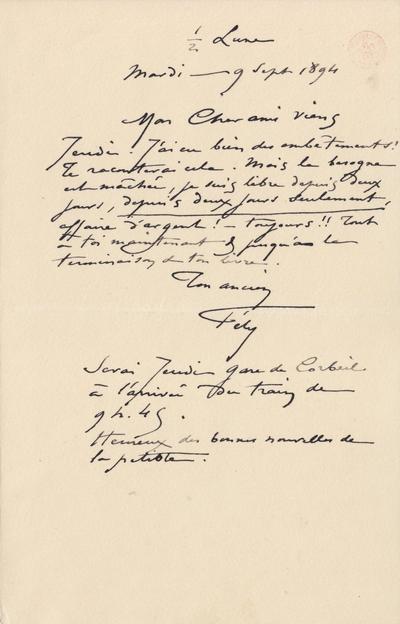 1/2 Lune
Mardi — 9 Sept 1894
Mon Cher ami viens
Jeudi. J'ai eu bien des embêtements!
Te raconterai cela. Mais la besogne
est mâchée, je suis libre depuis deux
jours, depuis deux jours seulement,
affaire d'argent! — toujours!! Tout
à toi maintenant & jusqu'à la
terminaison de ton livre.
Ton ancien
Fély
Serai Jeudi gare de Corbeil
à l'arrivée du train de
9h. 45.
Heureux des bonnes nouvelles de
la petite.